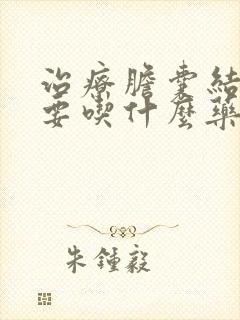 治療膽囊結
要喫什麼藥
朱鍾毅